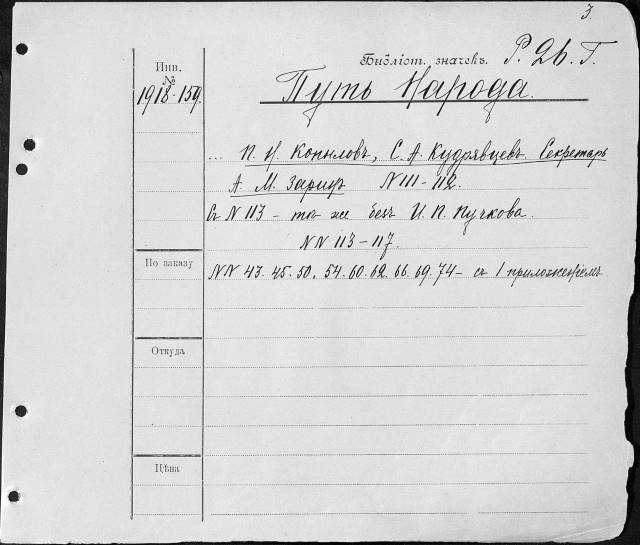 3.
Инв.
№
1918-159.
Библіот. значекъ. Р. 2б. Г.
Путь Народа.
... П. И. Копыловъ, С. А. Кудрявцевъ. Секретарь
А. М. Зарицъ NIII-112.
Съ N 113 - тѣ же безъ И. П. Пучкова.
NN 113-117.
По заказу
NN 43. 45. 50. 54. 60. 62. 66. 69. 74 - съ 1 приложеніемъ.
Откуда
Цѣна